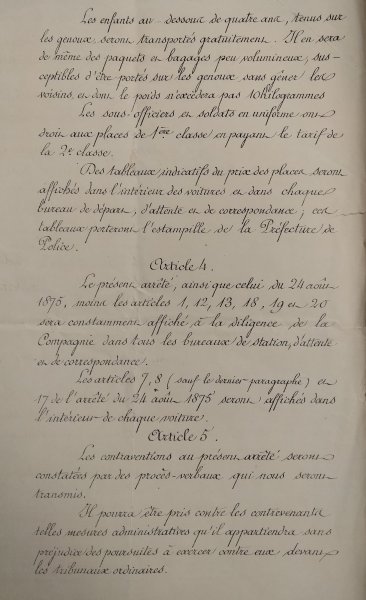 Les enfants au-dessous de quatre ans, tenus sur
les genoux, seront transportés gratuitement. Il en sera
de même des paquets et bagages peu volumineux, sus-
ceptibles d'être portés sur les genoux sans gêner les
voisins, et dont le poids n'excèdera pas 10 kilogrammes
Les sous-officiers et soldats en uniforme ont
droit aux places de 1ère classe en payant le tarif de
la 2e classe.
Des tableaux indicatifs du prix des places seront
affichés dans l'intérieur des voitures et dans chaque
bureau de départ, d'attente et de correspondance; ces
tableaux porteront l'estampille de la Préfecture de
Police.
Article 4.
Le présent arrêté, ainsi que celui du 24 août
1875, moins les articles 1, 12, 13, 18, 19 et 20
sera constamment affiché à la diligence de la
Compagnie dans tous les bureaux de station, d'attente
et de correspondance.
Les articles 7, 8 (sauf le dernier paragraphe) et
17 de l'arrêté du 24 août 1875 seront affichés dans
l'intérieur de chaque voiture.
Article 5.
Les contraventions au présent arrêté seront
constatées par des procès-verbaux qui nous seront
transmis.
Il pourra être pris contre les contrevenants
telles mesures administratives qu'il appartiendra sans
préjudice des poursuites à exercer contre eux devant
les tribunaux ordinaires.